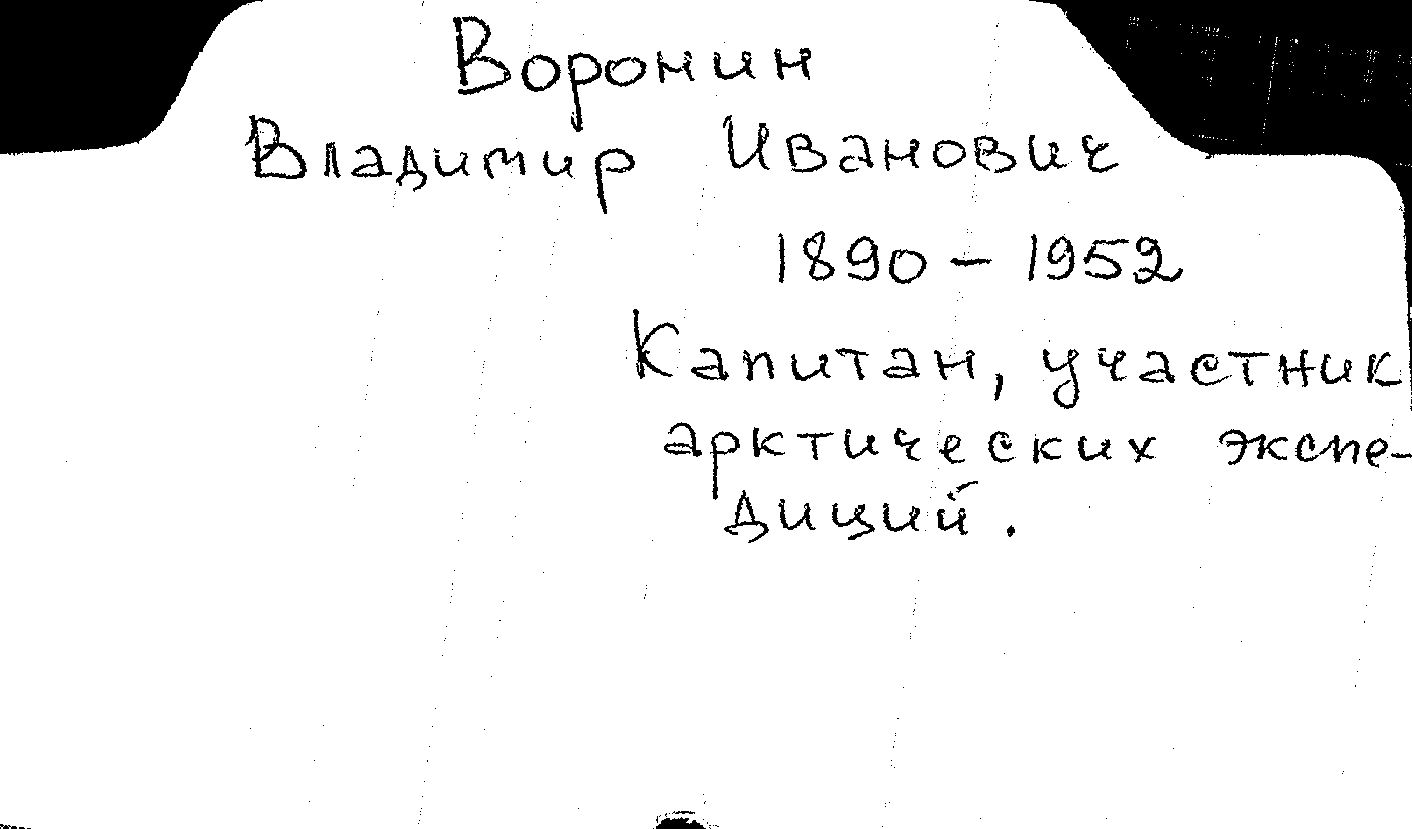 Воронин
Владимир Иванович
1890 – 1952
Капитан, участник
арктических экспе-
диций.